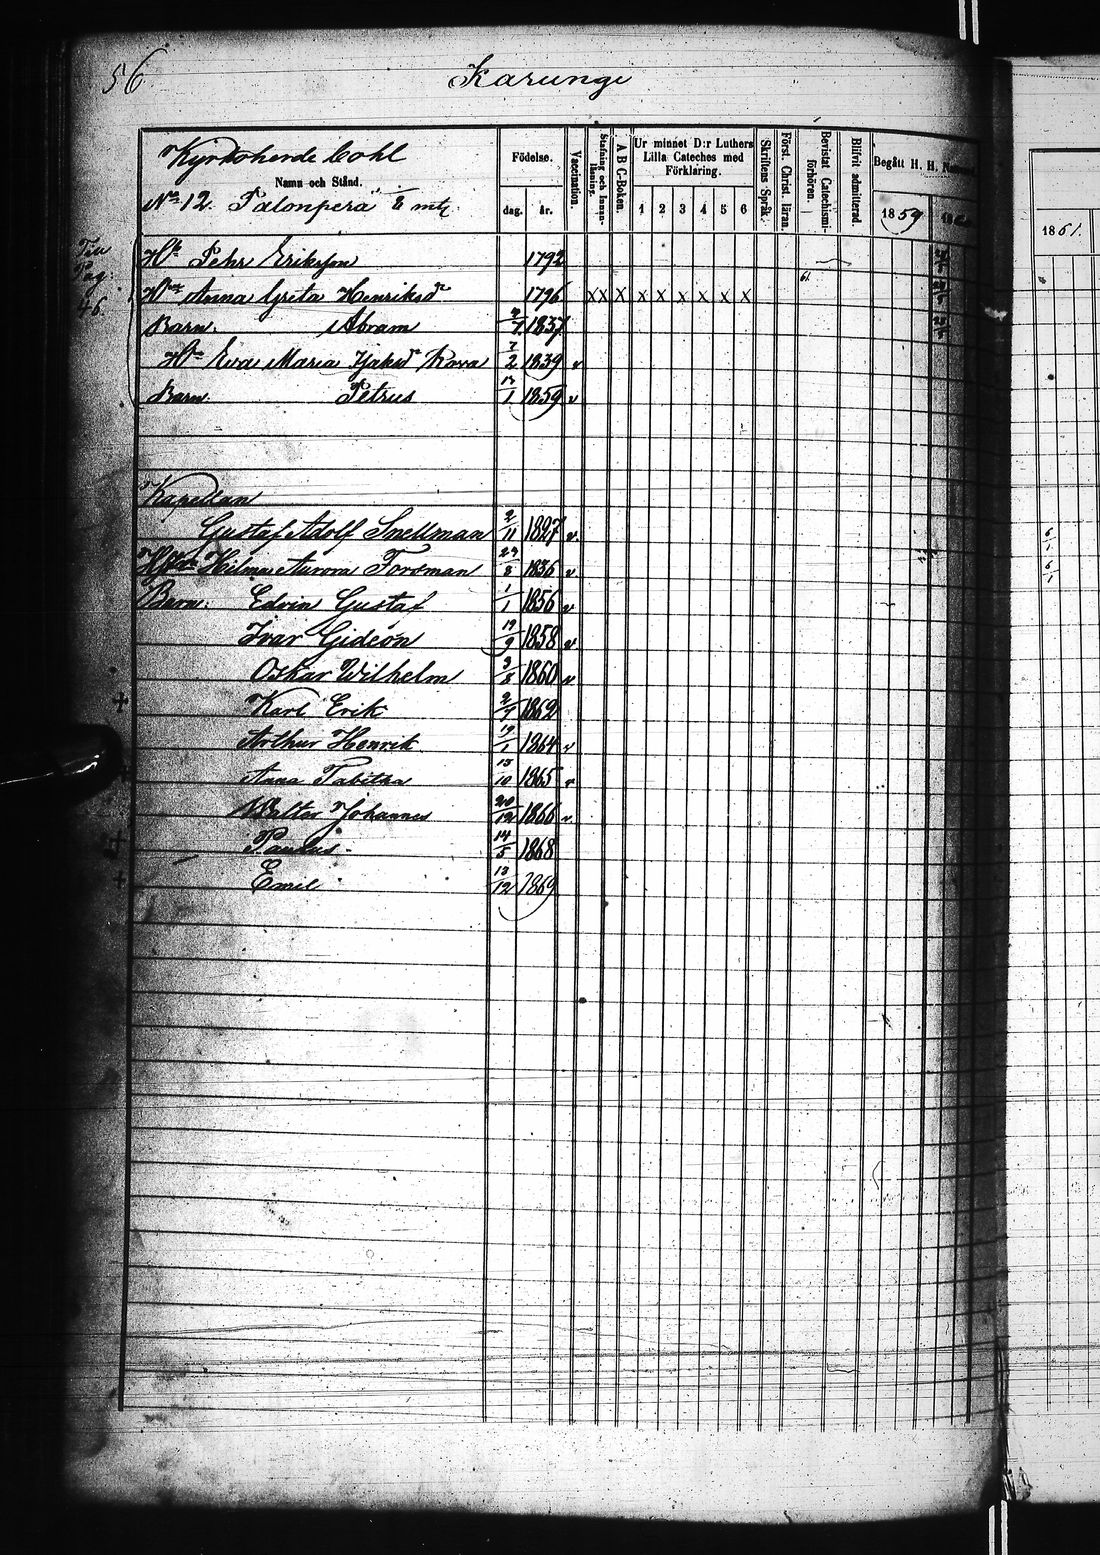 56
Karungi
Kyrkoherde Cohl
Namn och Stånd.
No 12. Palonperä
Födelse.
dag. år.
Vaccination.
Stafning och innanläsning.
A B C-Boken.
Ur minnet D:r Luthers Lilla Cateches med Förklaring.
1 2 3 4 5 6
Skriftens Språk.
Först. Christ. läran.
Bevistat Catechismi-förhören.
Blifvit admitterad.
Begått H. H.
1859
1861.
Till Pag: 46.
Hb Pehr Eriksson 1792
Hu Anna Greta Henriksdr 1796 X X X X X X X X X
61
Barn: Abram 1837
Hu Eva Maria Rova 2 1839 v
Barn: Petrus 1 1859 v
Kapellan
Gustaf Adolf Snellman 2/11 1827 v
Hilma Aurora Forsman 29/8 1836 v
Barn: Edvin Gustaf 1/1 1856 v
Ivar Gideon 19/9 1858 v
Oskar Wilhelm 3/8 1860 v
+ Karl Erik 2/7 1862
Arthur Henrik 19/1 1864 v
Anna Tabitha 15/10 1865 v
Walter Johannes 20/12 1866 v
+ Paulus 14/5 1868
+ Emil 13/12 1869